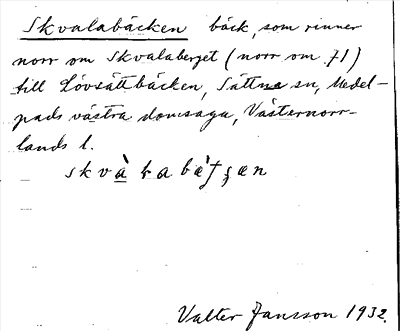 Skvalabäcken bäck, som rinner
norr om Skvalaberget (norr om 71)
till Lövsättbäcken, Sättna sn, Medel-
pads västra domsaga, Västernorr-
lands l.
Valter Jansson 1932.